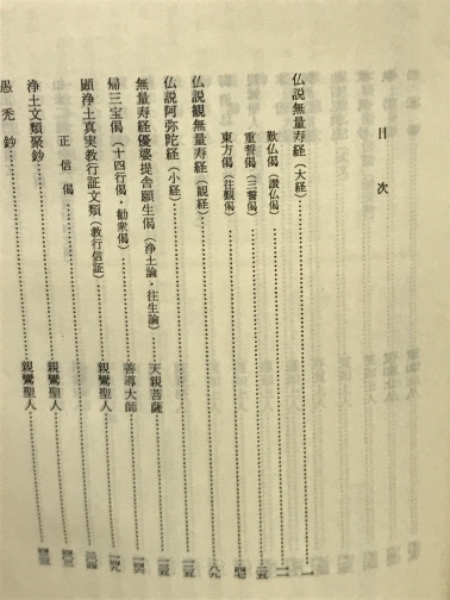 目次
仏説無量寿経（大経）……一
歎仏偈（讃仏偈）……一二
重誓偈（三誓偈）……二五
東方偈（往覲偈）……四七
仏説観無量寿経（観経）……八九
仏説阿弥陀経（小経）……一二五
無量寿経優婆提舎願生偈（浄土論・往生論）……天親菩薩……一三五
帰三宝偈（十四行偈・勧衆偈）……善導大師……一四六
顕浄土真実教行証文類（教行信証）……親鸞聖人……一四九
正信偈……
浄土文類聚鈔……親鸞聖人……
愚禿鈔……親鸞聖人……